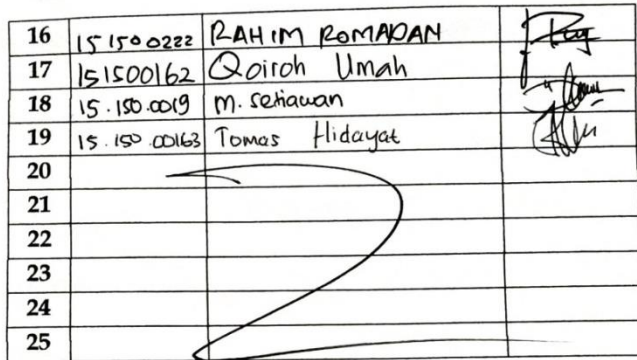 16 151500222 RAHIM ROMADAN
17 151500162 Qoiroh Umah
18 15.150.0019 M. Setiawan
19 15.150.00163 Tomas Hidayat
20
21
22
23
24
25